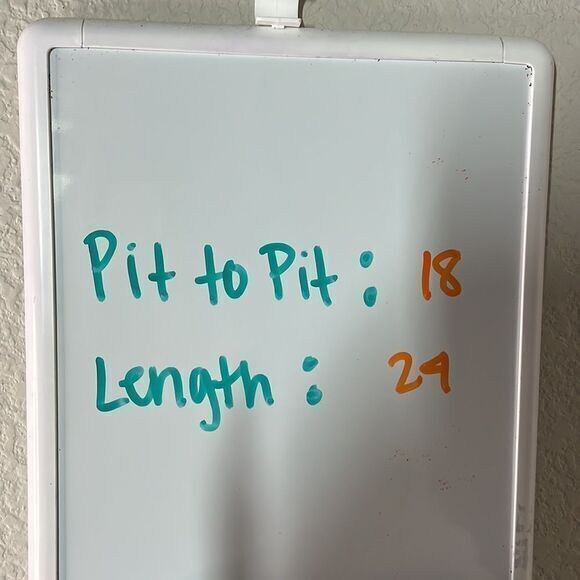 Pit to Pit : 18
Length : 24